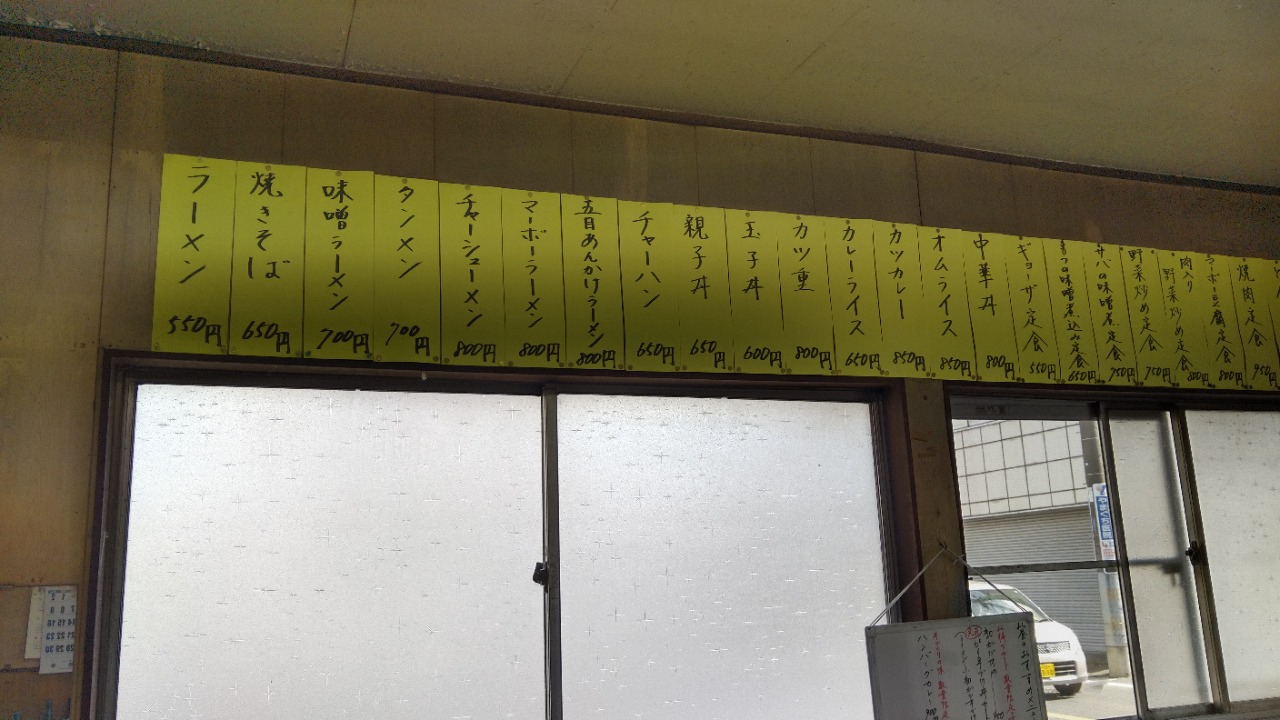 ラーメン 550円
焼きそば 650円
味噌ラーメン 700円
タンメン 700円
チャーシューメン 800円
マーボーラーメン 800円
五目あんかけラーメン 800円
チャーハン 650円
親子丼 650円
玉子丼 600円
カツ重 800円
カレーライス 650円
カツカレー 850円
オムライス 850円
中華丼 800円
ギョーザ定食 550円
もつの味噌煮込み定食 650円
サバの味噌煮定食 750円
野菜炒め定食 750円
肉入り野菜炒め定食 800円
マーボー豆腐定食 800円
焼肉定食 950円
ハンバーグカレー